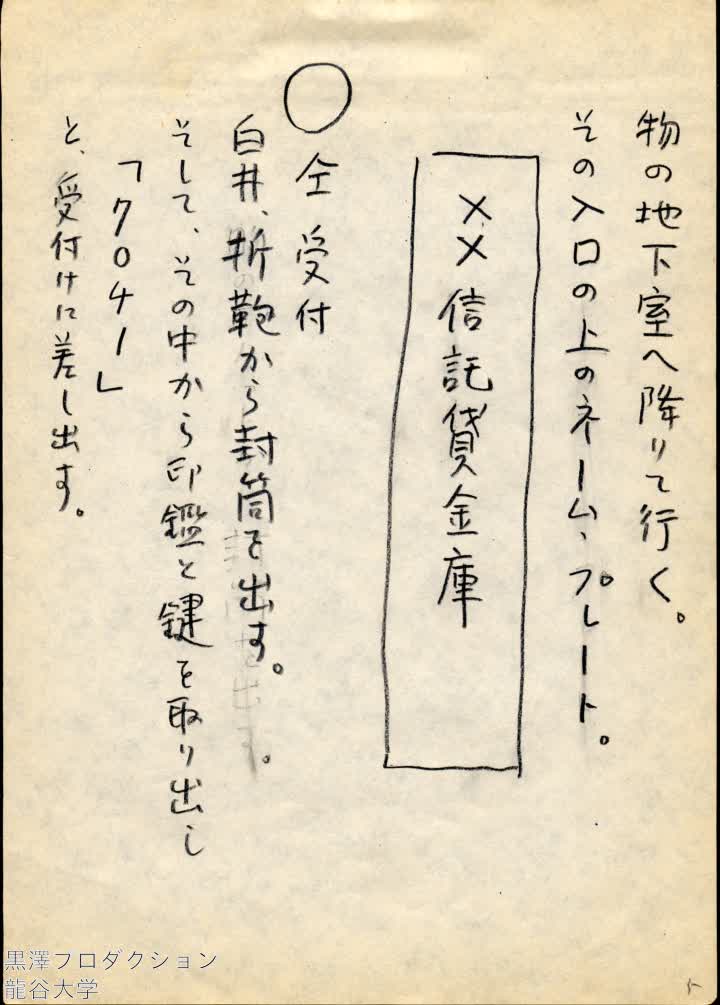 物の地下室へ降りて行く。
その入口の上のネーム、プレート。
××信託貸金庫
〇 仝 受付
白井、折鞄から封筒を出す。
そして、その中から印鑑と鍵を取り出し
「7041」
と、受付けに差し出す。
黒澤プロダクション
龍谷大学